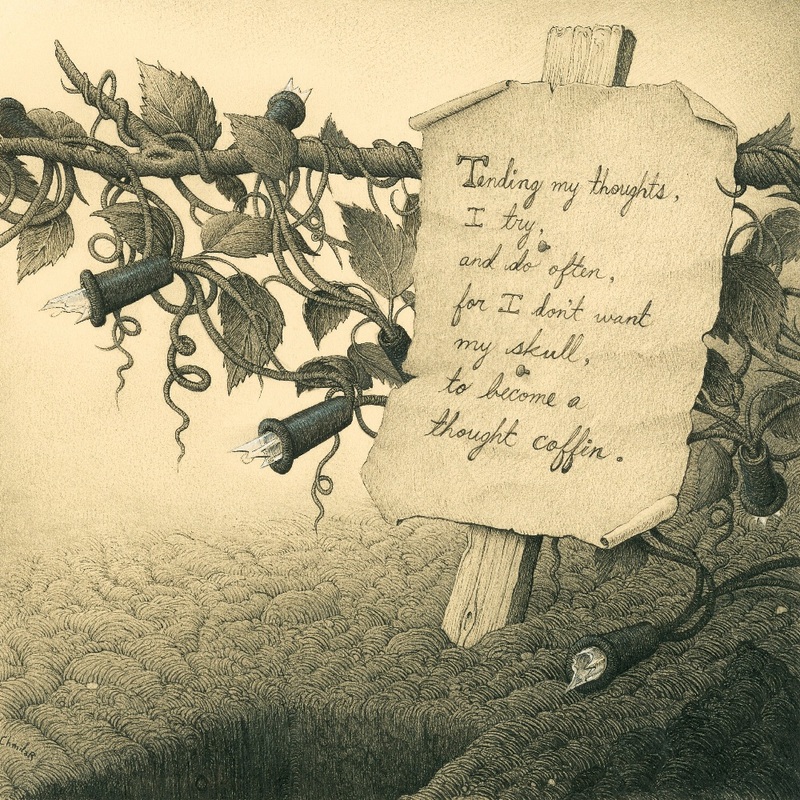 Tending my thoughts,
I try,
and do often,
for I don't want
my skull,
to become a
thought coffin.